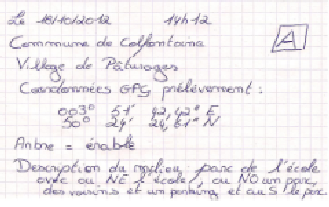 Le 18/10/2012 14h12
A
Commune de Colfontaine
Village de Pâturages
Coordonnées GPS prélèvement :
003° 51' E
50° 24' N
Arbre = érable
Description du milieu parc de l'école
avec au NE l'école, au NO un parc
des voisins et un parking et au S le parc